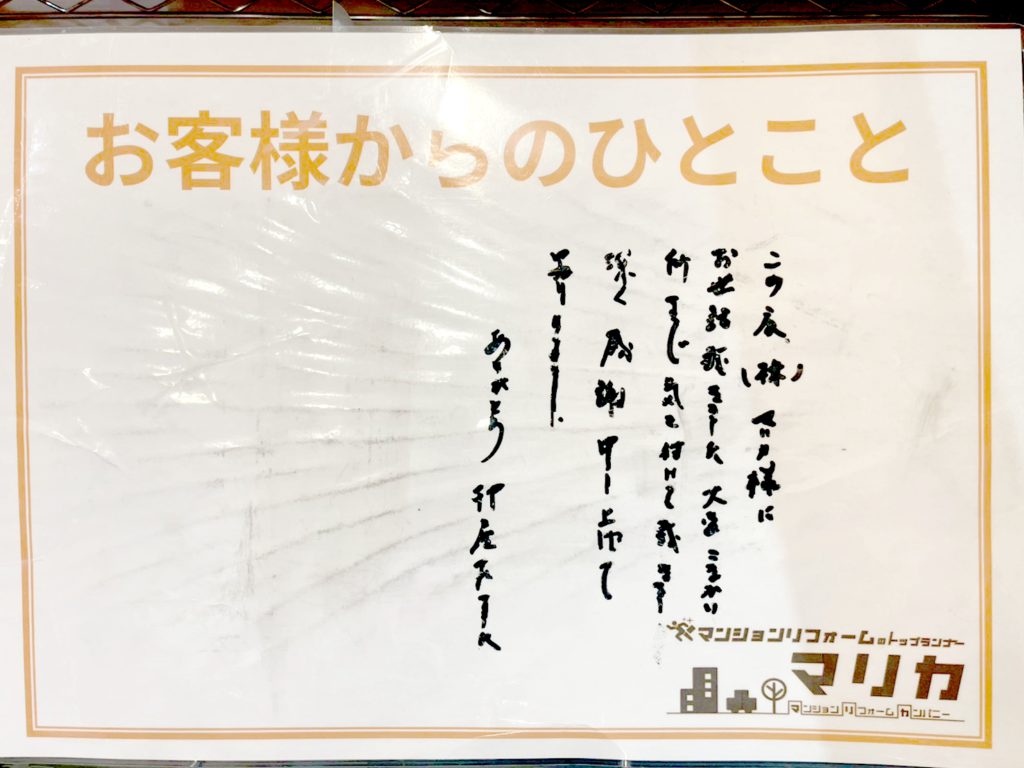 お客様からのひとこと
この度(株)マリカ様に
お世話戴きました 大変こまかい
所まで 気を付けて戴きまし
深く感謝申し上げて
おります。
ありがとう御座居ました
マンションリフォームのトップランナー
マリカ
マンションリフォームカンパニー